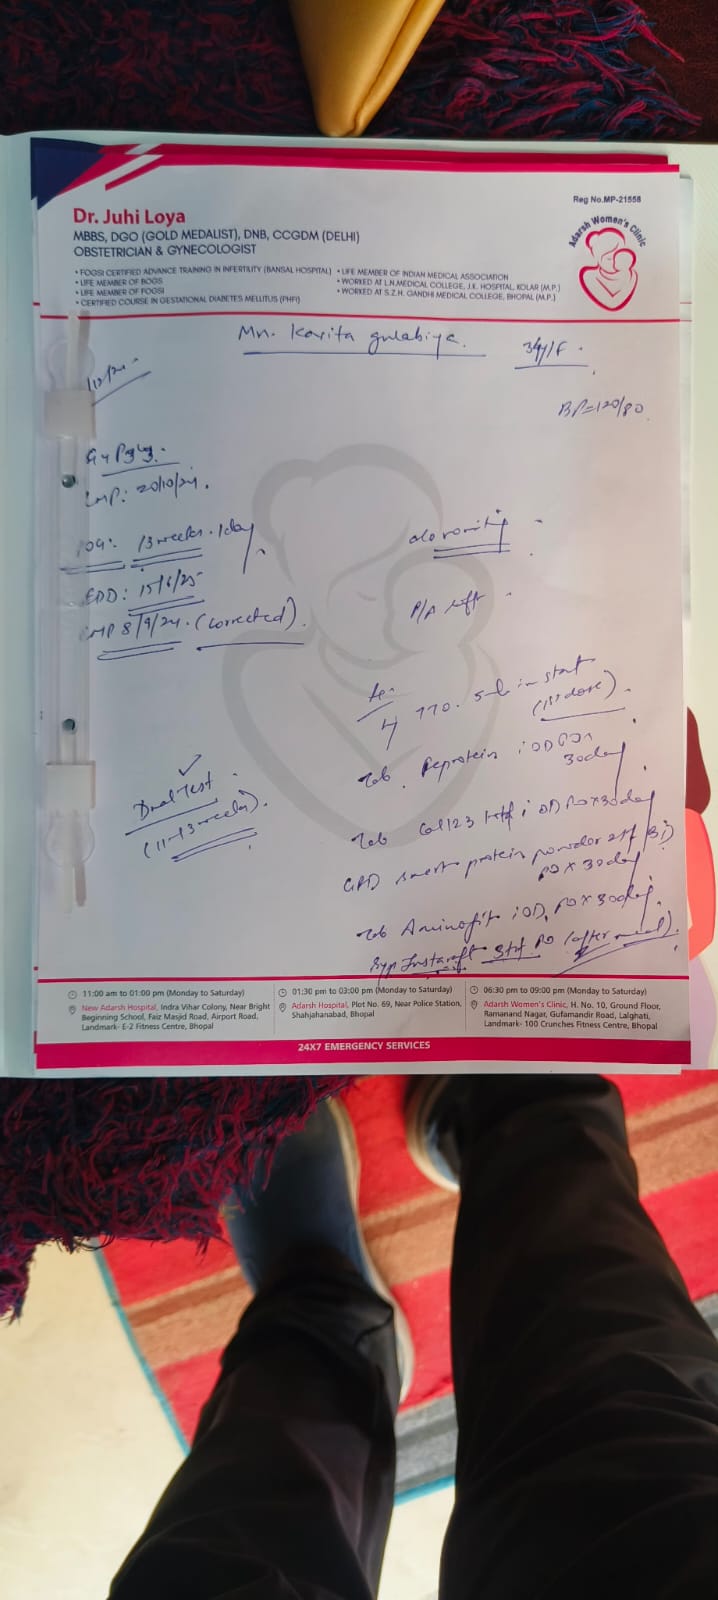 Reg No.MP-21558
Adarsh Women's Clinic
Dr. Juhi Loya
MBBS, DGO (GOLD MEDALIST), DNB, CCGDM (DELHI)
OBSTETRICIAN & GYNECOLOGIST
• FOGSI CERTIFIED ADVANCE TRAINING IN INFERTILITY (BANSAL HOSPITAL) • LIFE MEMBER OF INDIAN MEDICAL ASSOCIATION
• LIFE MEMBER OF BOGS • WORKED AT L.N.MEDICAL COLLEGE, J.K. HOSPITAL, KOLAR (M.P.)
• LIFE MEMBER OF FOGSI • WORKED AT S.Z.H. GANDHI MEDICAL COLLEGE, BHOPAL (M.P.)
• CERTIFIED COURSE IN GESTATIONAL DIABETES MELLITUS (PHFI)
Kavita gulabiya. 34y/F
BP=120/80
LMP: 20/10/24.
POG: 13 weeks. 1 day
c/o vomiting
EDD: 15/6/25
LMP 8/9/24. (corrected).
P/A soft
stat
(1st dose).
Tab.
30days
Dual Test
(11-13 weeks).
Tab OD PO x 30days
protein powder
PO x 30days
Tab Aminofit OD PO x 30days
Syp (after meal).
11:00 am to 01:00 pm (Monday to Saturday)
New Adarsh Hospital, Indra Vihar Colony, Near Bright
Beginning School, Faiz Masjid Road, Airport Road,
Landmark- E-2 Fitness Centre, Bhopal
01:30 pm to 03:00 pm (Monday to Saturday)
Adarsh Hospital, Plot No. 69, Near Police Station,
Shahjahanabad, Bhopal
06:30 pm to 09:00 pm (Monday to Saturday)
Adarsh Women's Clinic, H. No. 10, Ground Floor,
Ramanand Nagar, Gufamandir Road, Lalghati,
Landmark- 100 Crunches Fitness Centre, Bhopal
24X7 EMERGENCY SERVICES